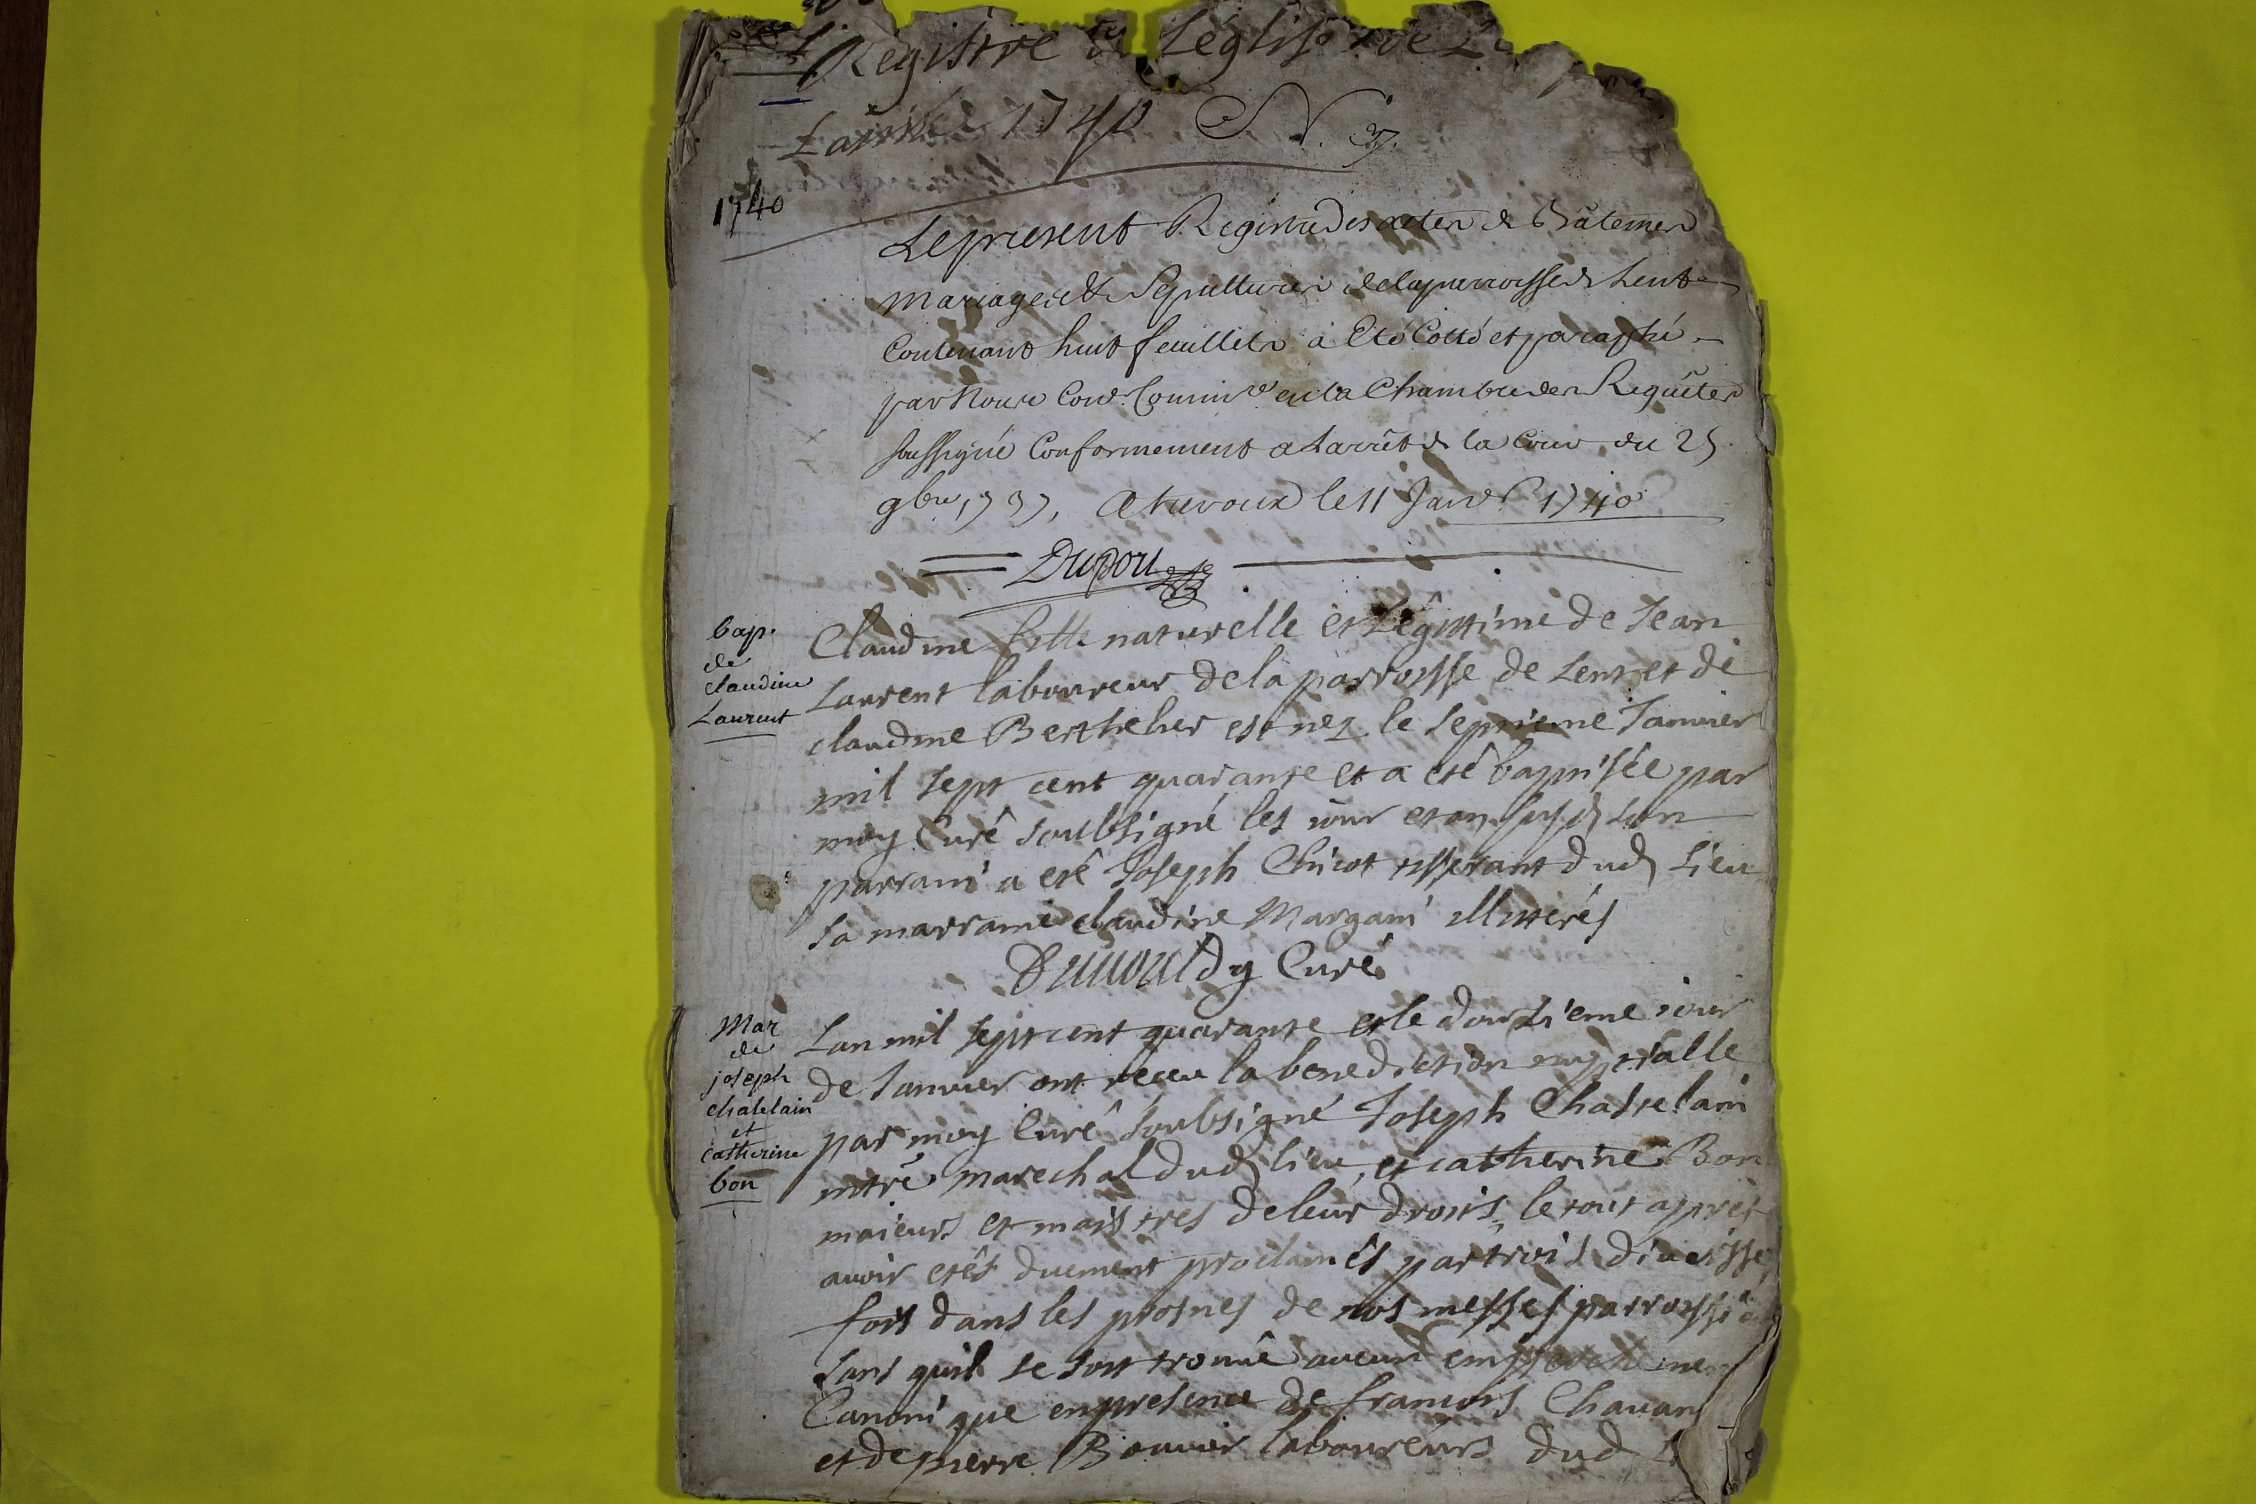 Registre de Léglise de L
Lannée 1740 N. 37.
1740
Le present Registre des actes de Bâtemes
Mariages et Sepultures de la parroisse de Lent
Contenant huit feuillets a Eté Cotté et paraphé
par Nous Coner Commre en la Chambre des Requêtes
soussigné Conformement a Larrêt de la Cour du 25
9bre 1737, A trevoux le 11 Janvr 1740
Bap.
de
claudine
Laurent
Claudine fille naturelle et Légittime de Jean
Laurent laboureur de la parroisse de Lent et de
claudine Berthelier est nez le septieme Janvier
mil sept cent quarante et a eté baptisée par
moy Curé soubsigné les iour et an susd son
parrain a eté Joseph Chicot tisserant dud Lieu
sa marraine claudine Margain illitterés
Curé
Mar
de
joseph
chatelain
et
catherine
bon
Lan mil sept cent quarante et le douzieme iour
de Janvier ont receu la benediction nuptialle
par moy Curé soubsigné Joseph Chastelain
mtre marechal dud lieu, et catherine Bon
maieurs et maistres de leur droits, le tout apprés
avoir etés duement proclamés par trois diversse
fois dans les prosnes de nos messes parroissia
sans quil se soit trouvé aucun empechemen
Canonique en presence de francois Chavan
et de pierre Bouvier laboureurs dud L